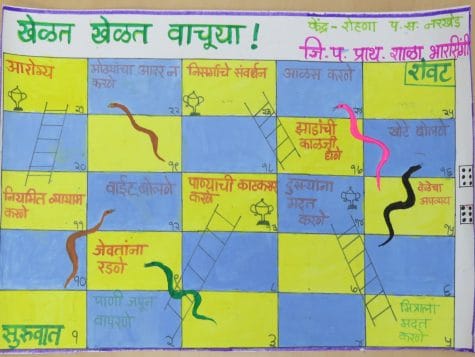 खेळत खेळत वाचूया !
केंद्र - रोहणा प. स. नरखेड
जि. प. प्राथ. शाळा भारसिंगी
शेवट
आरोग्य
मोठ्यांचा आदर न
करणे
निसर्गाचे संवर्धन
आळस करणे
२१
२२
२३
२४
झाडांची
काळजी
घेणे
खोटे बोलणे
१९
१८
१६
नियमित व्यायाम
करणे
वाईट बोलणे
पाण्याची काटकसर
करणे
दुसऱ्याला
मदत
करणे
वेळेचा
अपव्यय
११
१२
१३
१४
१५
जेवतांना
रडणे
१०
८
६
पाणी जपून
वापरणे
मित्राला
मदत
करणे
सुरुवात
१
२
३
४
५